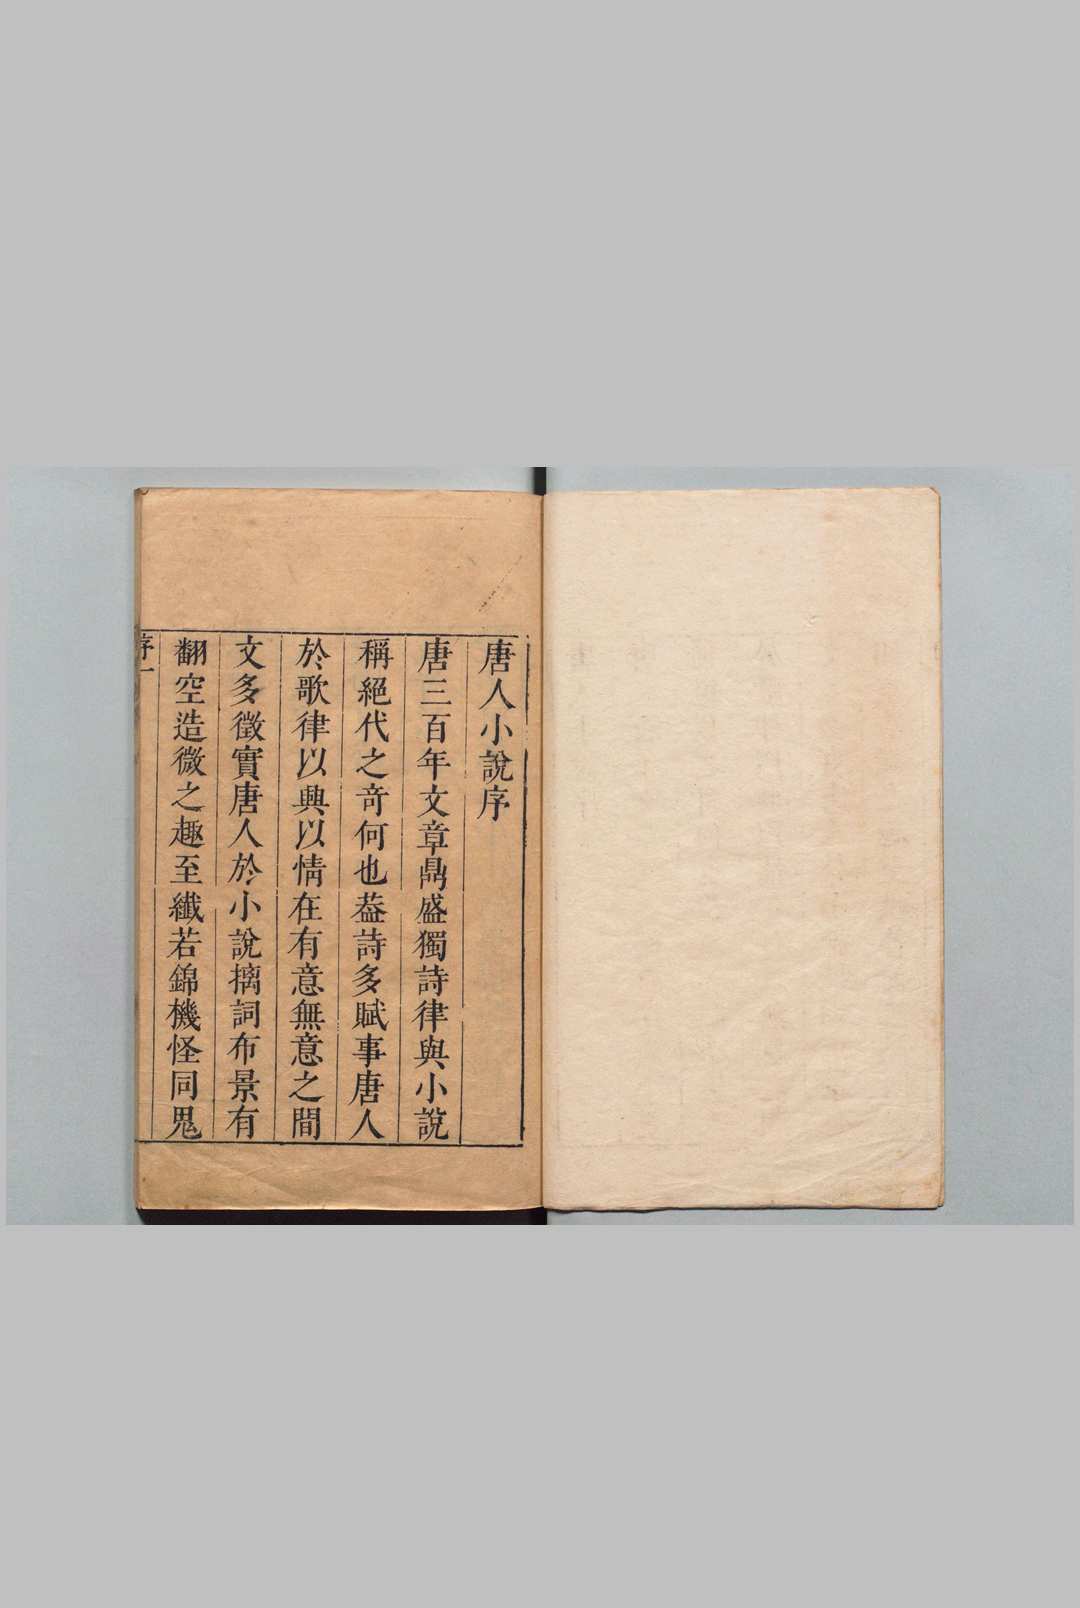 唐人小說序
唐三百年文章鼎盛獨詩律與小說
稱絕代之奇何也葢詩多賦事唐人
於歌律以興以情在有意無意之間
文多徵實唐人於小說摛詞布景有
翻空造微之趣至纖若錦機怪同鬼
序一